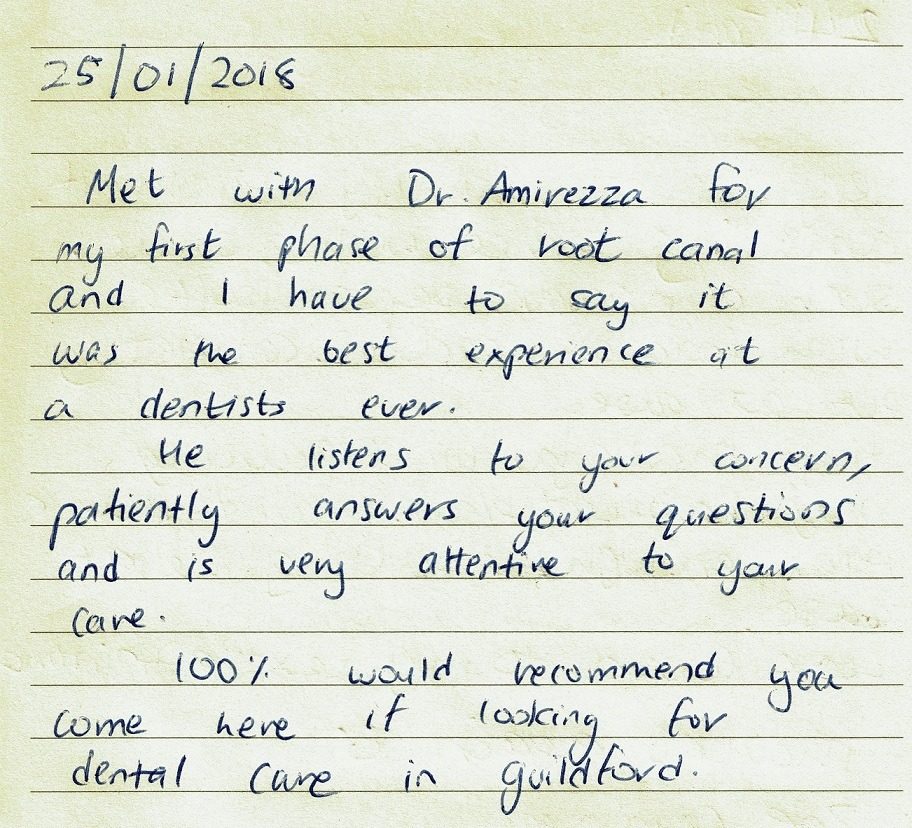 25/01/2018
Met with Dr. Amirezza for
my first phase of root canal
and I have to say it
was the best experience at
a dentists ever.
He listens to your concern,
patiently answers your questions
and is very attentive to your
care.
100% would recommend you
come here if looking for
dental care in guildford.